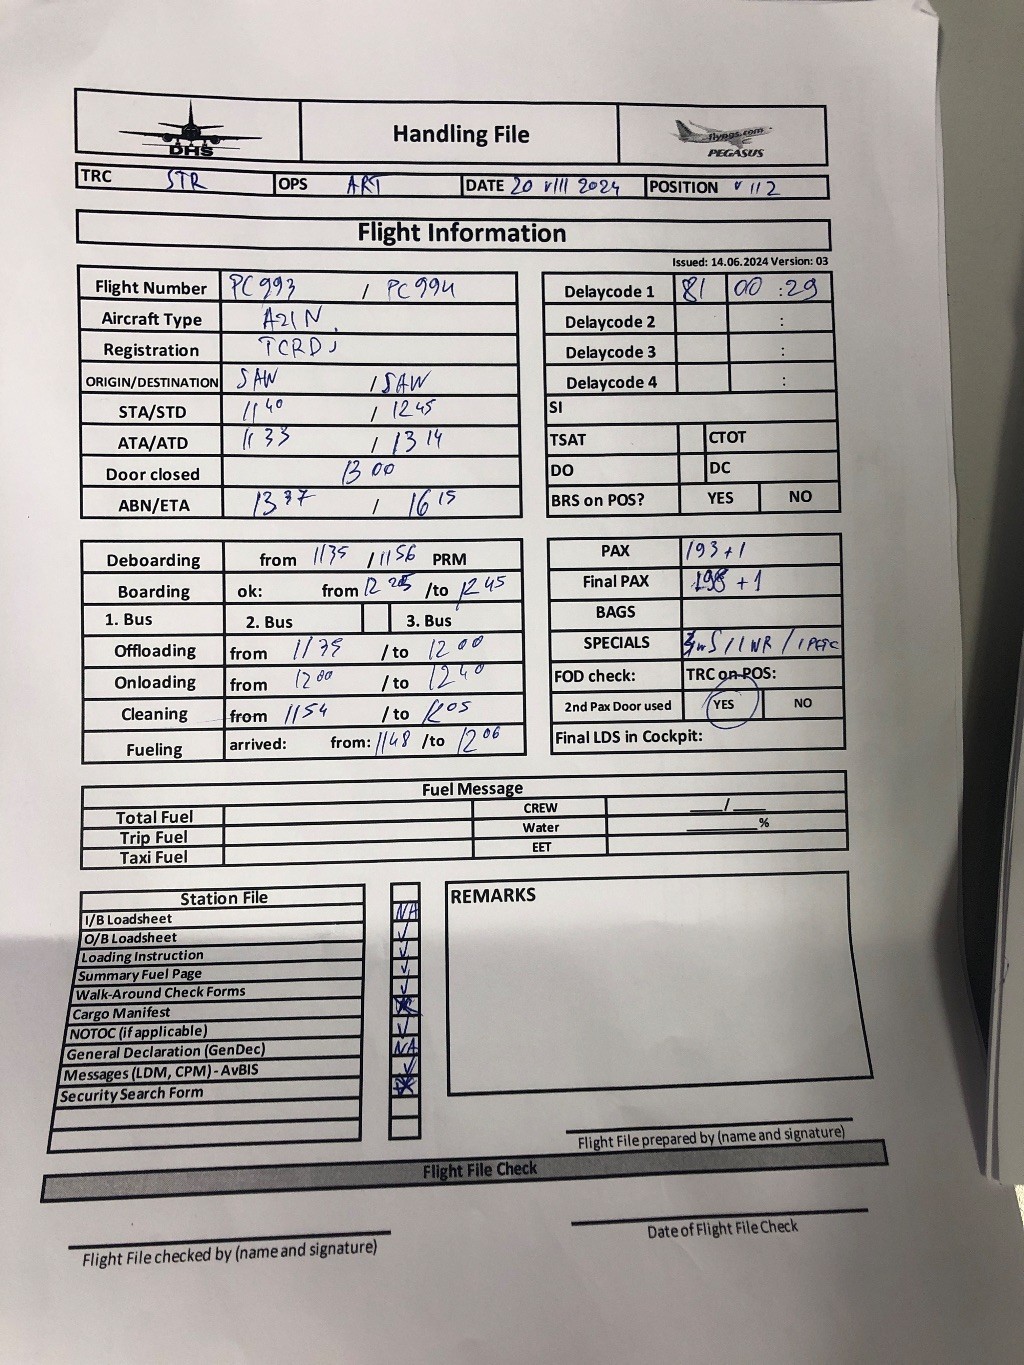 DHS
Handling File
flypgs.com
PEGASUS
TRC STR OPS ART DATE 20 VIII 2024 POSITION V 112
Flight Information
Issued: 14.06.2024 Version: 03
Flight Number PC993 / PC994
Aircraft Type A21N
Registration TCRDJ
ORIGIN/DESTINATION SAW / SAW
STA/STD 1140 / 1245
ATA/ATD 1133 / 1314
Door closed 1300
ABN/ETA 1337 / 1615
Delaycode 1 81 00 :29
Delaycode 2 :
Delaycode 3 :
Delaycode 4 :
SI
TSAT CTOT
DO DC
BRS on POS? YES NO
Deboarding from 1135 / 1156 PRM
Boarding ok: from 12 /to 1245
1. Bus 2. Bus 3. Bus
Offloading from 1139 / to 1200
Onloading from 1200 / to 1240
Cleaning from 1154 / to 1205
Fueling arrived: from: 1148 /to 1206
PAX 193+1
Final PAX 198 +1
BAGS
SPECIALS INS / 1 WR / 1 PETC
FOD check: TRC on POS:
2nd Pax Door used YES NO
Final LDS in Cockpit:
Fuel Message
Total Fuel CREW ____/____
Trip Fuel Water ________%
Taxi Fuel EET
Station File
I/B Loadsheet NA
O/B Loadsheet ✓
Loading Instruction ✓
Summary Fuel Page ✓
Walk-Around Check Forms ✓
Cargo Manifest
NOTOC (if applicable) ✓
General Declaration (GenDec) NA
Messages (LDM, CPM) - AvBIS ✓
Security Search Form
REMARKS
Flight File prepared by (name and signature)
Flight File Check
Flight File checked by (name and signature)
Date of Flight File Check